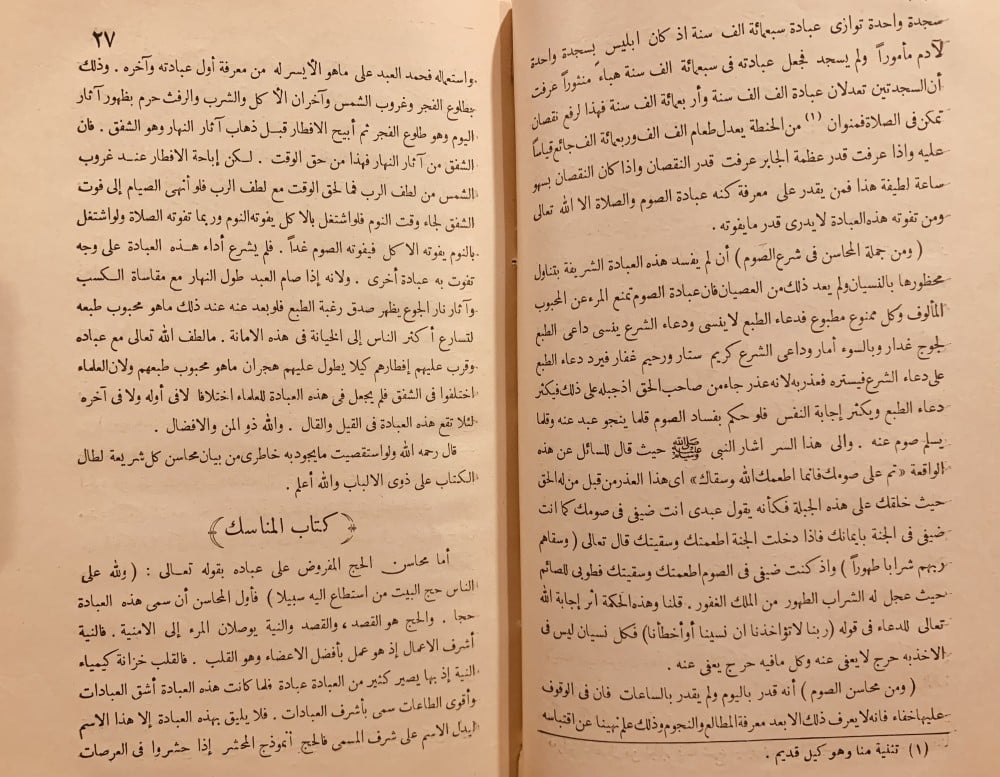 سجدة واحدة توازى عبادة سبعمائة الف سنة اذ كان ابليس بسجدة واحدة
لآدم مأموراً ولم يسجد فجعل عبادته فى سبعمائة الف سنة هباء منثوراً عرفت
أن السجدتين تعدلان عبادة الف الف سنة وأربعمائة الف سنة فهذا لرفع نقصان
تمكن فى الصلاة فمنوان (١) من الحنطة يعدل طعام الف الف وربعمائة الف جائع قياساً
عليه واذا عرفت قدر عظمة الجابر عرفت قدر النقصان واذا كان النقصان بسهو
ساعة لطيفة هذا فمن يقدر على معرفة كنه عبادة الصوم والصلاة الا الله تعالى
ومن تفوته هذه العبادة لا يدرى قدر ما يفوته .
( ومن جملة المحاسن فى شرع الصوم ) أن لم يفسد هذه العبادة الشريفة بتناول
محظورها بالنسيان ولم يعد ذلك من العصيان فان عبادة الصوم تمنع المرء عن المحبوب
المألوف وكل ممنوع مطبوع فدعاء الطبع لا ينسى ودعاء الشرع ينسى داعى الطبع
لجوج غدار وبالسوء أمار وداعى الشرع كريم ستار ورحيم غفار فيرد دعاء الطبع
على دعاء الشرع فيستره فعذر به لانه عذر جاء من صاحب الحق اذ جبله على ذلك فيكثر
دعاء الطبع ويكثر إجابة النفس فلو حكم بفساد الصوم قلما ينجو عبد عنه وقلما
يسلم صوم عنه . والى هذا السر اشار النبى ﷺ حيث قال للسائل عن هذه
الواقعة «تم على صومك فانما اطعمك الله وسقاك» اى هذا العذر من قبل من له الحق
حيث خلقك على هذه الجبلة فكأنه يقول عبدى انت ضيفى فى صومك كما انت
ضيفى فى الجنة بايمانك فاذا دخلت الجنة اطعمتك وسقيتك قال تعالى ( وسقاهم
ربهم شرابا طهوراً ) واذ كنت ضيفى فى الصوم اطعمتك وسقيتك فطوبى للصائم
حيث عجل له الشراب الطهور من الملك الغفور . قلنا وهذه الحكمة اثر إجابة الله
تعالى للدعاء فى قوله ( ربنا لا تؤاخذنا ان نسينا أو أخطأنا ) فكل نسيان ليس فى
الاخذ به حرج لا يعفى عنه وكل ما فيه حرج يعفى عنه .
( ومن محاسن الصوم ) أنه قدر باليوم ولم يقدر بالساعات فان فى الوقوف
عليها خفاء فانه لا يعرف ذلك الا بعد معرفة المطالع والنجوم وذلك علم نهينا عن اقتباسه
(١) تثنية منا وهو كيل قديم .
٢٧
واستعماله فحمد العبد على ما هو الأيسر له من معرفة أول عبادته وآخره . وذلك
بطلوع الفجر وغروب الشمس وآخران الأكل والشرب والرفث حرم بظهور آثار
اليوم وهو طلوع الفجر ثم أبيح الافطار قبل ذهاب آثار النهار وهو الشفق . فان
الشفق من آثار النهار فهذا من حق الوقت . لكن إباحة الافطار عند غروب
الشمس من لطف الرب فما لحق الوقت مع لطف الرب فلو أنهى الصيام إلى فوت
الشفق لجاء وقت النوم فلو اشتغل بالاكل يفوته النوم وربما تفوته الصلاة ولو اشتغل
بالنوم يفوته الاكل فيفوته الصوم غداً . فلم يشرع أداء هذه العبادة على وجه
تفوت به عبادة أخرى . ولانه إذا صام العبد طول النهار مع مقاساة الكسب
وآثار نار الجوع يظهر صدق رغبة الطبع فلو بعد عنه عند ذلك ما هو محبوب طبعه
لتسارع أكثر الناس إلى الخيانة فى هذه الامانة . ما لطف الله تعالى مع عباده
وقرب عليهم إفطارهم كيلا يطول عليهم هجران ما هو محبوب طبعهم ولان العلماء
اختلفوا فى الشفق فلم يجعل فى هذه العبادة للعلماء اختلافا لا فى أوله ولا فى آخره
لئلا تقع هذه العبادة فى القيل والقال . والله ذو المن والافضال .
قال رحمه الله ولو استقصيت ما يجود به خاطرى من بيان محاسن كل شريعة لطال
الكتاب على ذوى الالباب والله أعلم .
﴿ كتاب المناسك ﴾
أما محاسن الحج المفروض على عباده بقوله تعالى : ( ولله على
الناس حج البيت من استطاع اليه سبيلا ) فأول المحاسن أن سمى هذه العبادة
حجا . والحج هو القصد ، والقصد والنية يوصلان المرء إلى الامنية . فالنية
أشرف الاعمال إذ هو عمل بأفضل الاعضاء وهو القلب . فالقلب خزانة كيمياء
النية إذ بها يصير كثير من العبادة عبادة فلما كانت هذه العبادة أشق العبادات
وأقوى الطاعات سمى بأشرف العبادات . فلا يليق بهذه العبادة إلا هذا الاسم
ليدل الاسم على شرف المسمى فالحج أنموذج المحشر إذا حشروا فى العرصات